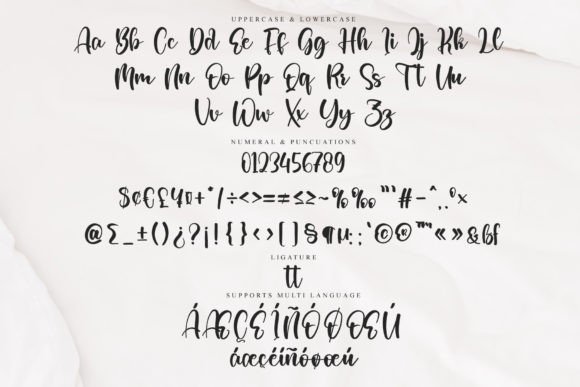 UPPERCASE & LOWERCASE
Aa Bb Cc Dd Ee Ff Gg Hh Ii Jj Kk Ll
Mm Nn Oo Pp Qq Rr Ss Tt Uu
Vv Ww Xx Yy Zz
NUMERAL & PUNCUATIONS
0123456789
$¢€£¥¤+*/÷<>=≠≤≥~%‰"'#-^,.°×
@Σ_±()¿?¡!{}‹›[]§¶µ:;‘©®™“«»&bf
LIGATURE
tt
SUPPORTS MULTI LANGUAGE
ÁÆÇÉÍÑÓØŒÚ
áæçéíñóøœú